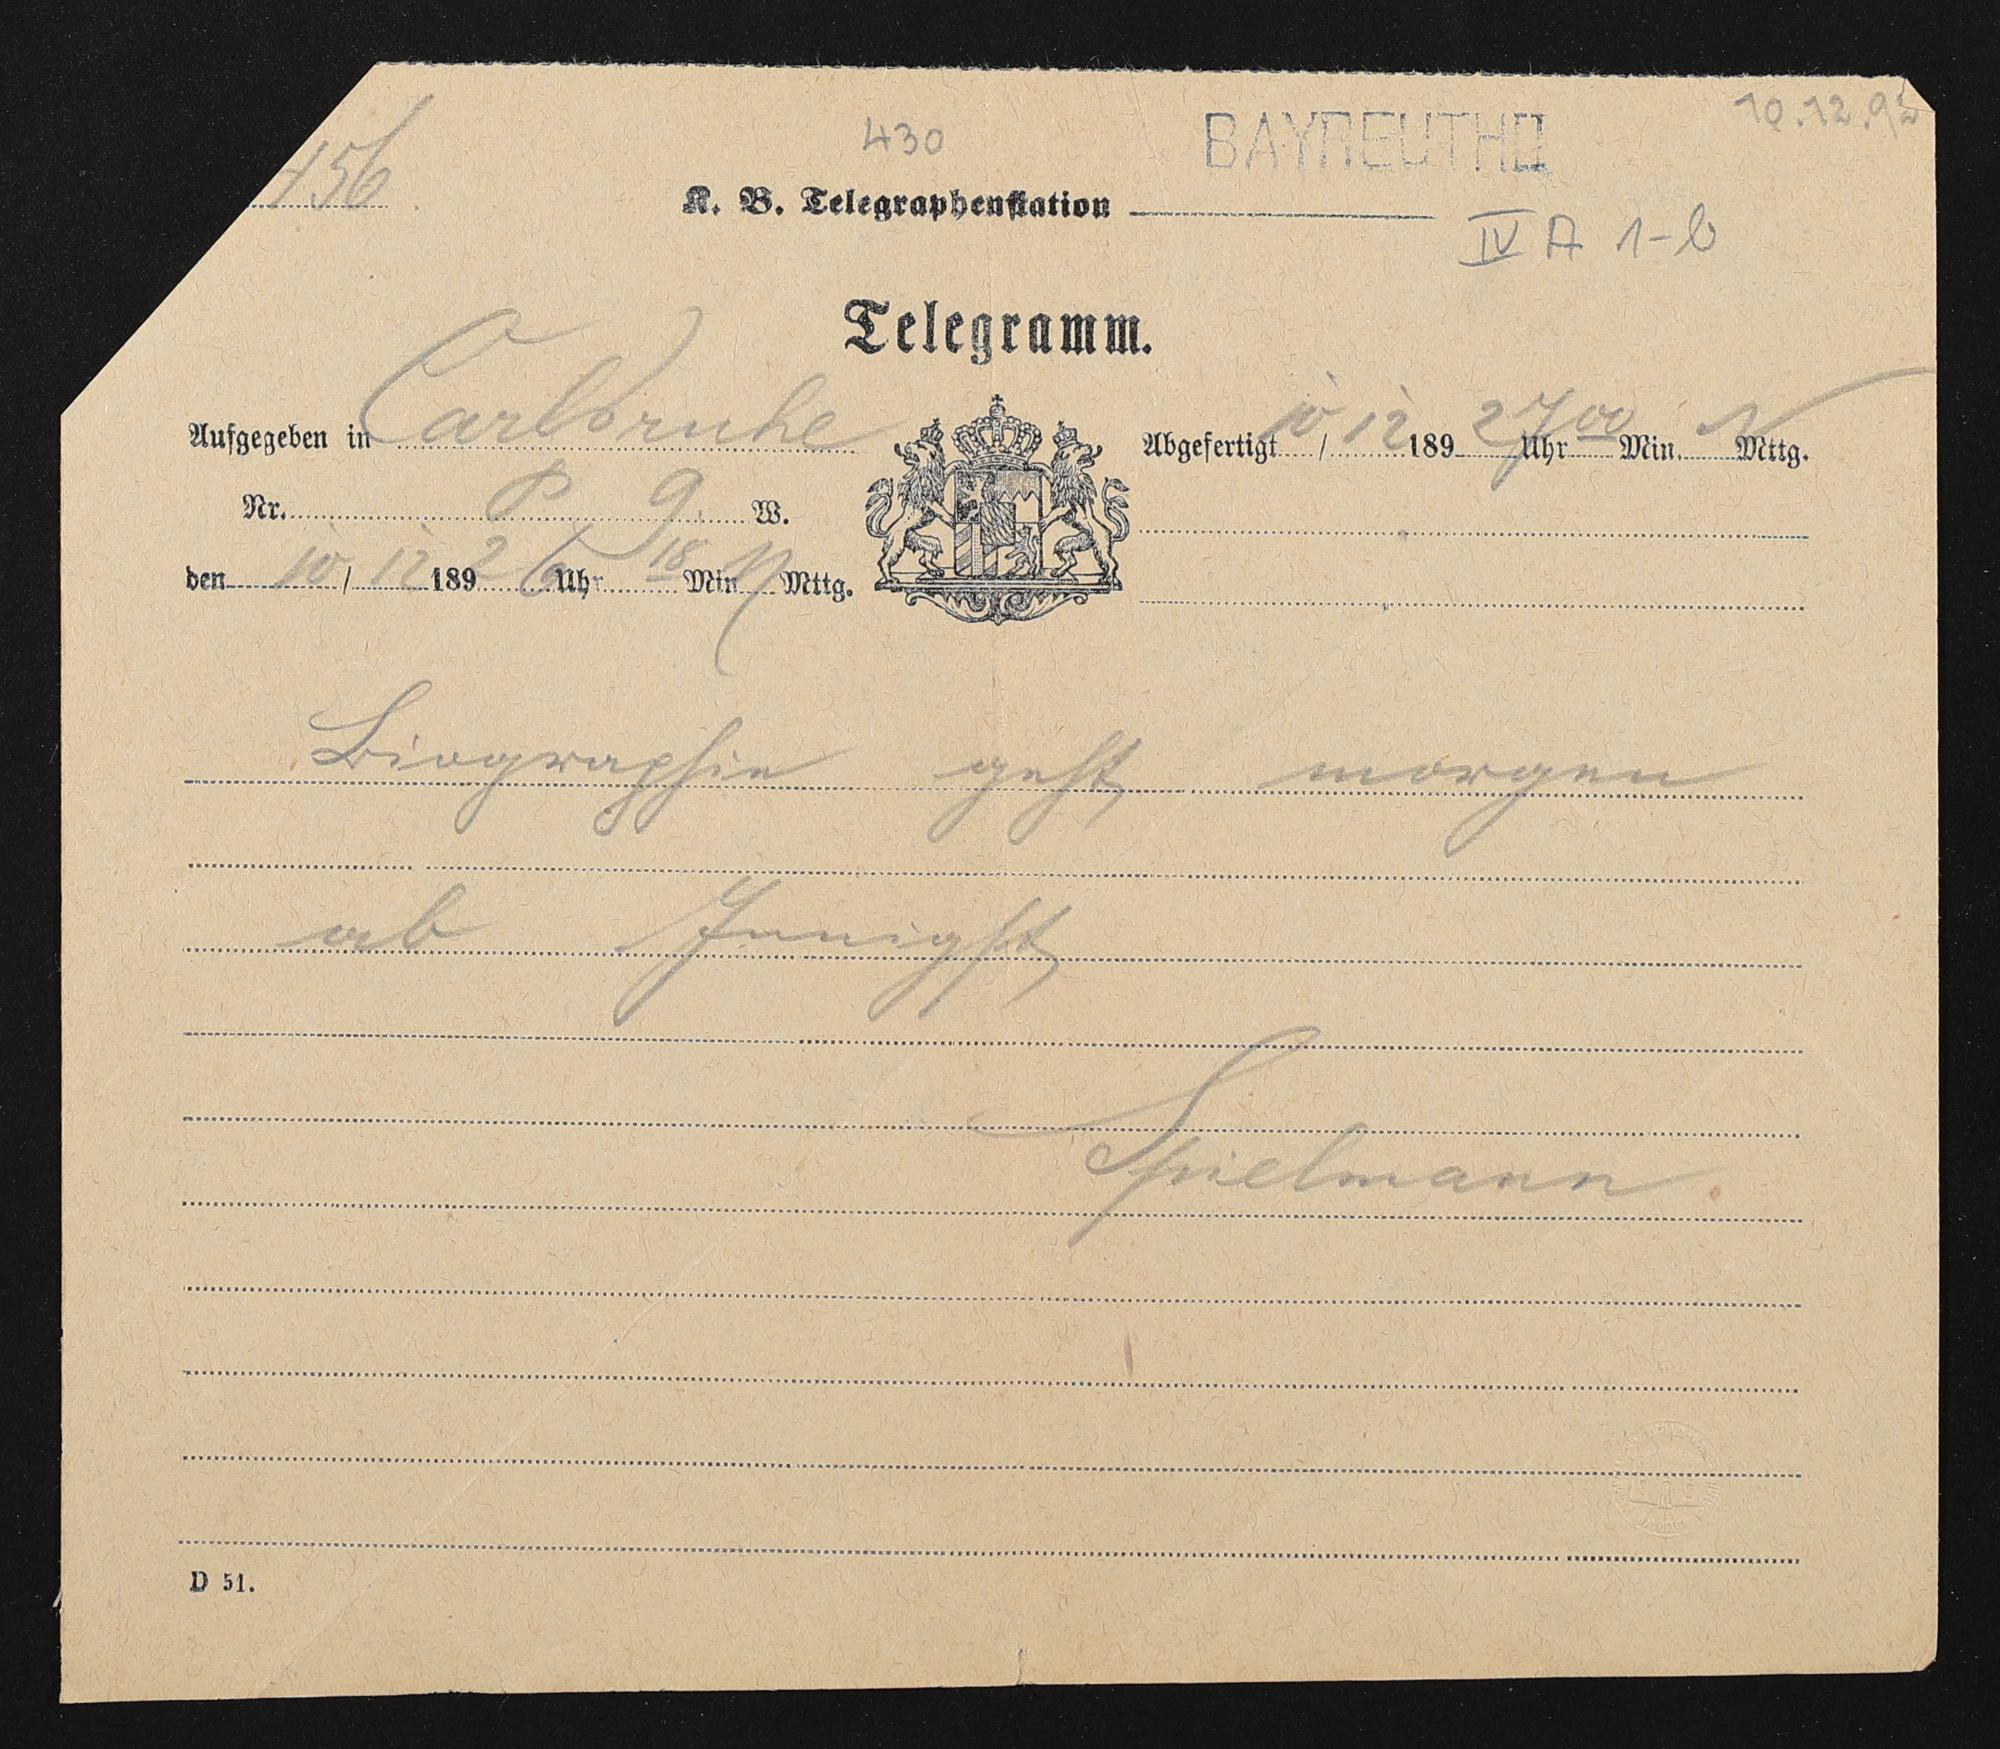 430
BAYREUTH II
10.12.92
456
K. B. Telegraphenstation
IV A 1-b
Telegramm.
Aufgegeben in Carlsruhe
Abgefertigt 10 / 12 189 2 7 Uhr 00 Min. N Mttg.
Nr. P 9 W.
den 10 / 12 189 2 6 Uhr 18 Min N Mttg.
Biographie geht morgen
ab Innigst
Spielmann
D 51.